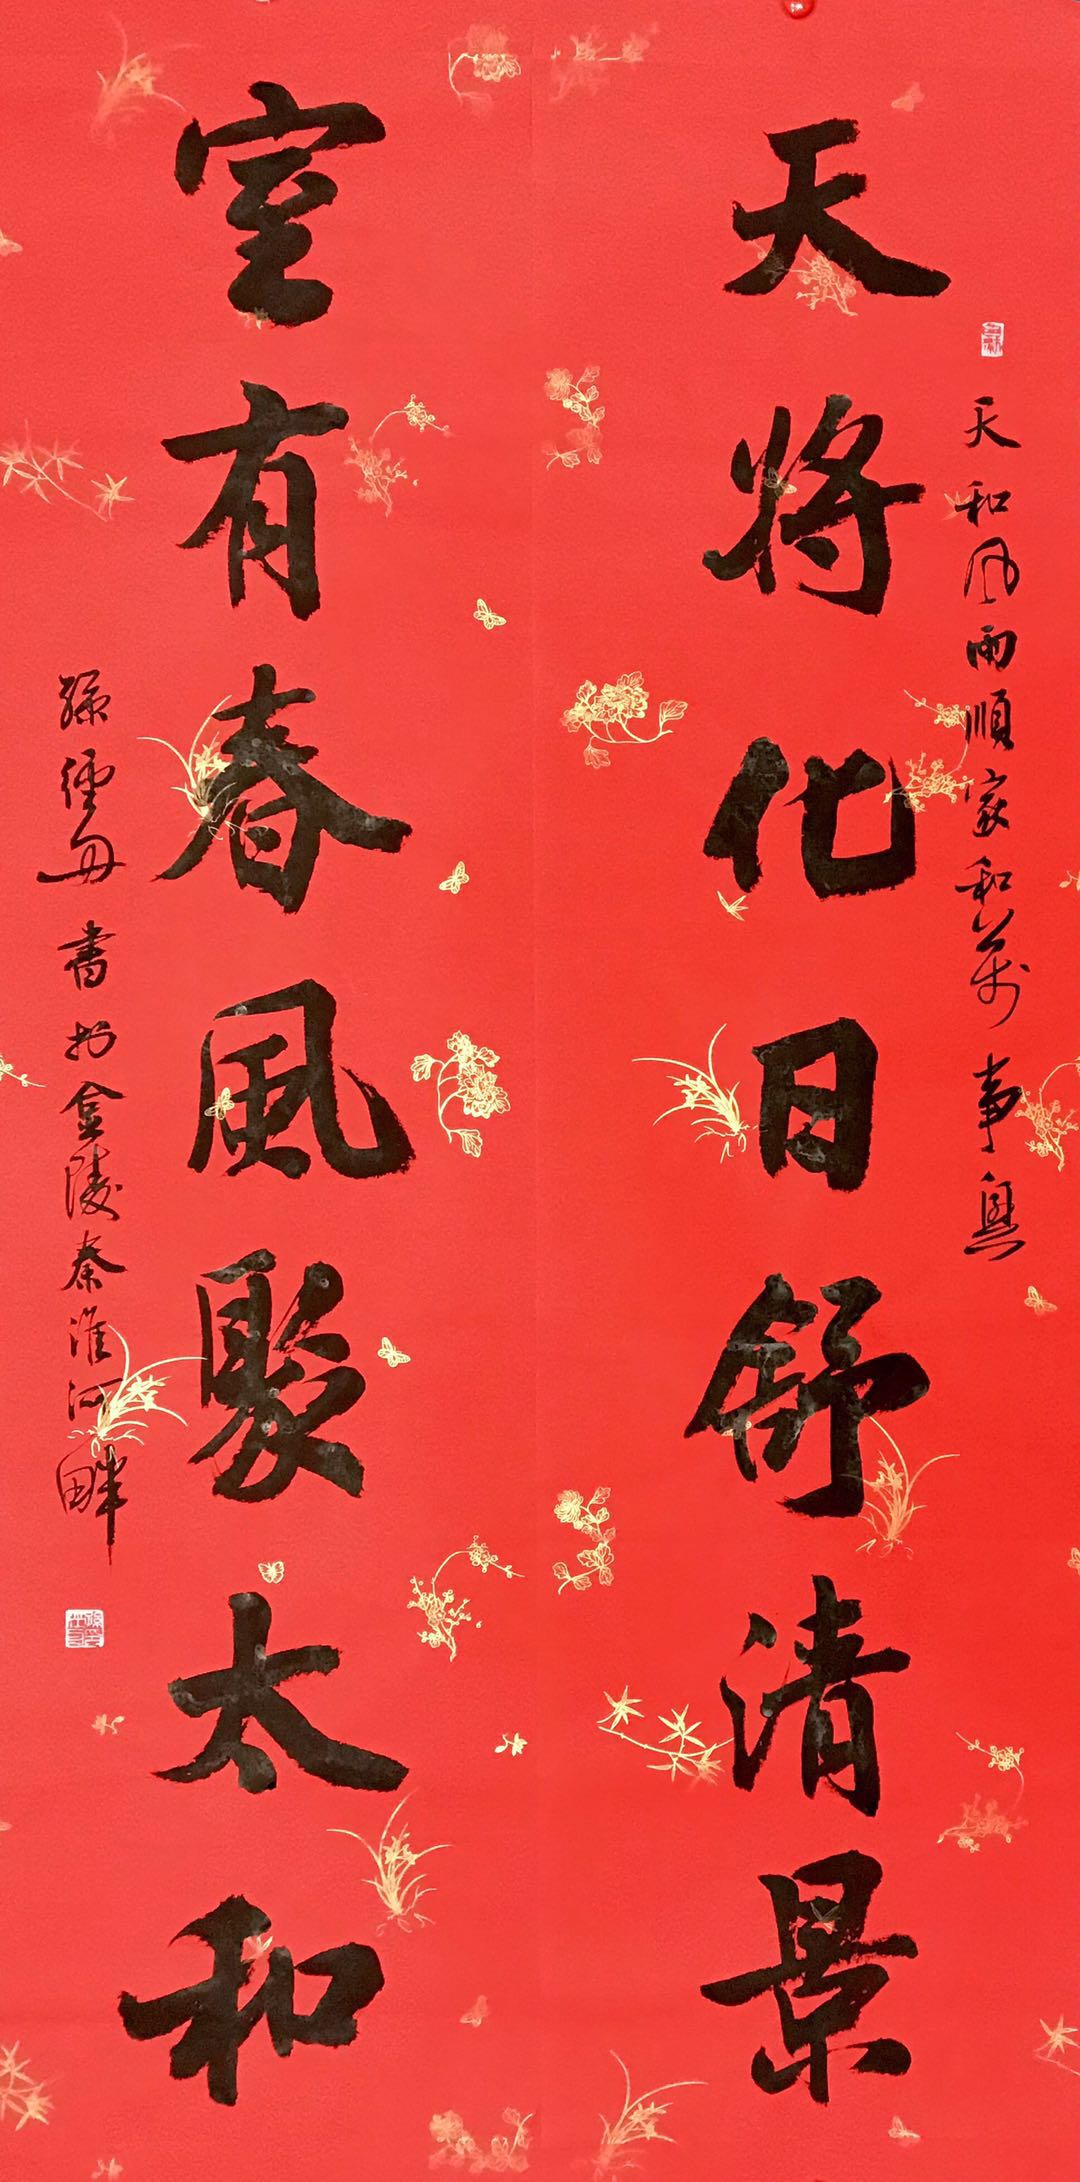 天和風雨順家和萬事興
天將化日舒清景
室有春風聚太和
書於金陵秦淮河畔